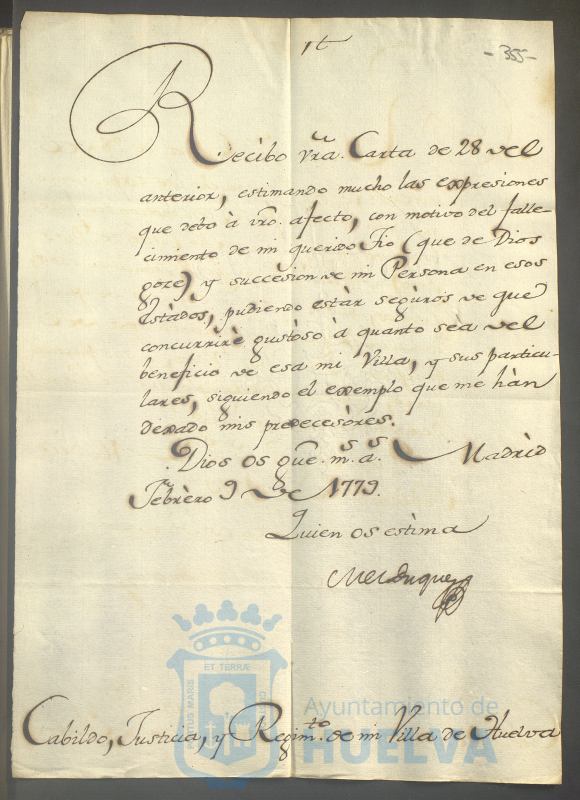 - 355 -
Recibo vrã. Carta de 28 del
anterior, estimando mucho las expresiones
que debo à vrõ. afecto, con motivo del falle-
cimiento de mi querido Tio (que de Dios
goze) y succèsion de mi Persona en esos
Estàdos, pudiendo estàr segùros de que
concurrirè gustòso à quanto sea del
beneficio de esa mi Villa, y sus particu-
lares, siguiendo el exemplo que me hàn
dexado mis predecesòres.
Dios os gue. ms. as. Madrid
Febrèro 9 de 1779.
Quien os estìma
El Duque
Cabildo, Justicia, y Regimto. de mi Villa de Huelva
PORTUS MARIS
ET TERRÆ
Ayuntamiento de
HUELVA